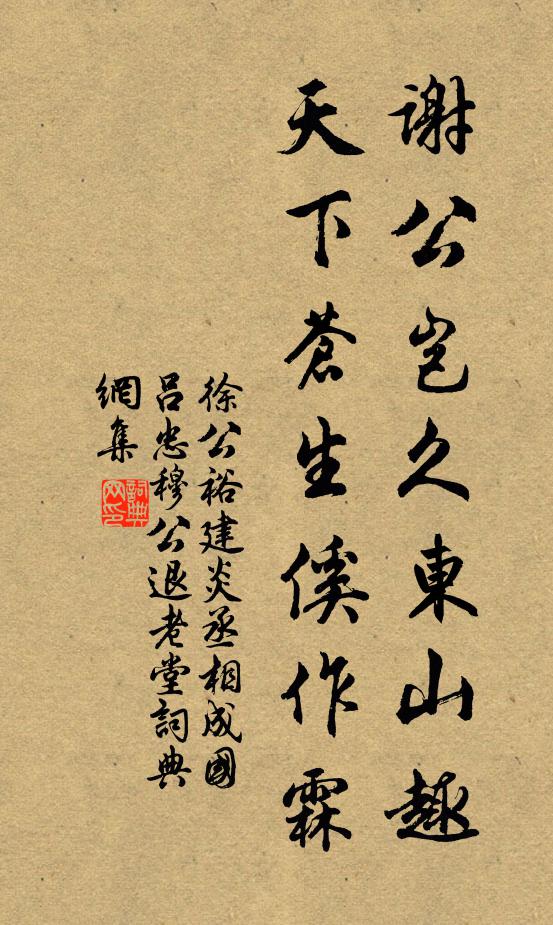 謝公岂久東山趣
天下蒼生傒作霖
徐公裕建炎丞相成國
呂忠穆公退老堂詞典
網集
詞典
网印